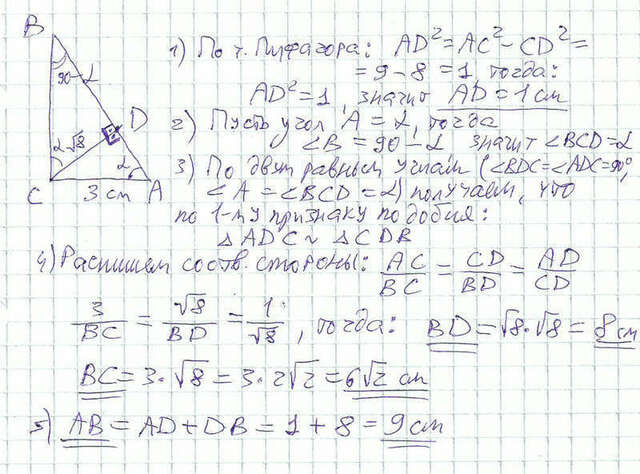 B
90-α
α √8
D
C 3 см A
α
1) По т. Пифагора: AD² = AC² - CD² =
= 9 - 8 = 1, тогда:
AD² = 1, значит AD = 1 см
2) Пусть угол A = α, тогда
∠B = 90 - α значит ∠BCD = α
3) По двум равным углам (∠BDC = ∠ADC = 90°,
∠A = ∠BCD = α) получаем, что
по 1-му признаку подобия:
△ADC ~ △CDB
4) Распишем соотв. стороны: AC/BC = CD/BD = AD/CD
3/BC = √8/BD = 1/√8, тогда: BD = √8·√8 = 8 см
BC = 3·√8 = 3·2√2 = 6√2 см
5) AB = AD + DB = 1 + 8 = 9 см